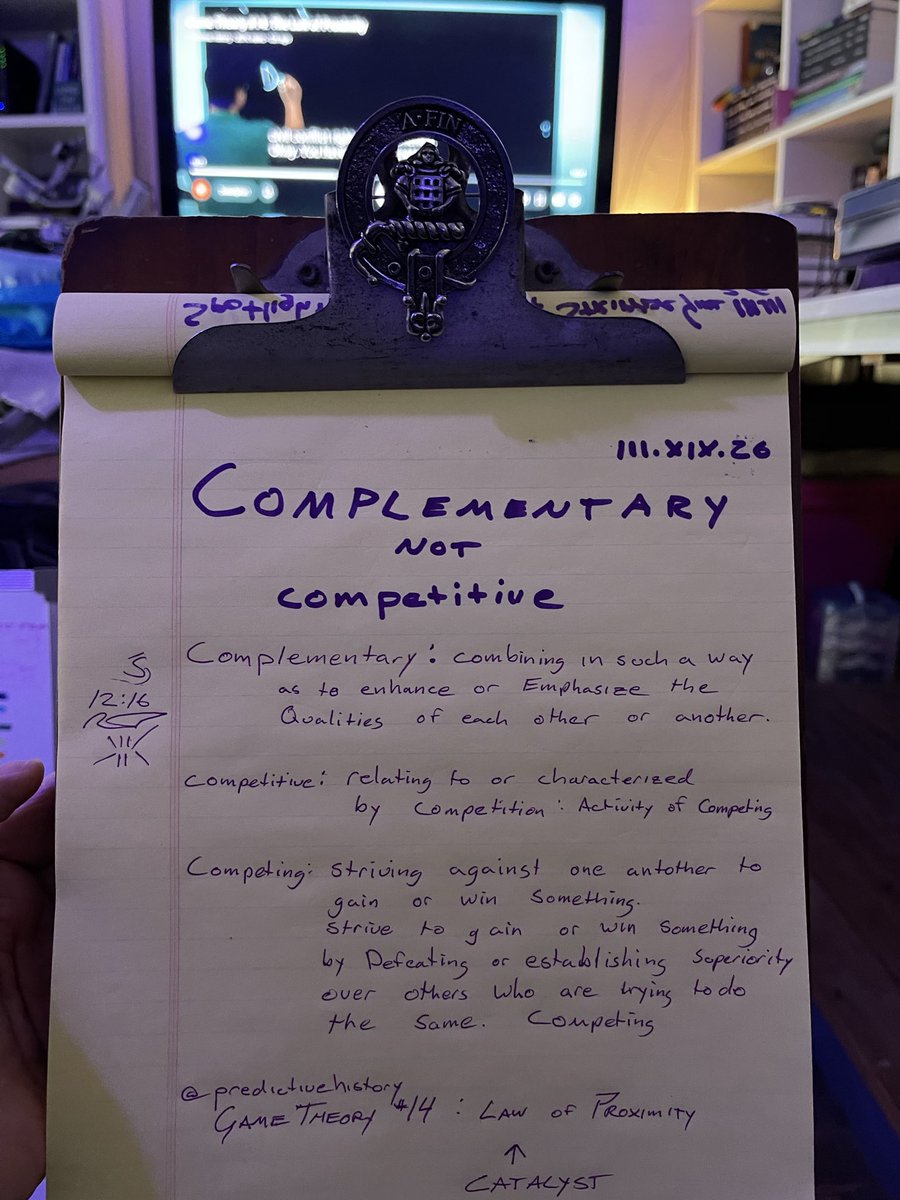 A·FIN
III.XIX.26
COMPLEMENTARY
NOT
competitive
Complementary: combining in such a way
as to enhance or Emphasize the
Qualities of each other or another.
12:16
Competitive: relating to or characterized
by Competition: Activity of Competing
Competing: Striving against one antother to
gain or win something.
Strive to gain or win something
by Defeating or establishing Superiority
over others who are trying to do
the same. Competing
@predictivehistory
GAME THEORY #14: LAW OF PROXIMITY
↑
CATALYST